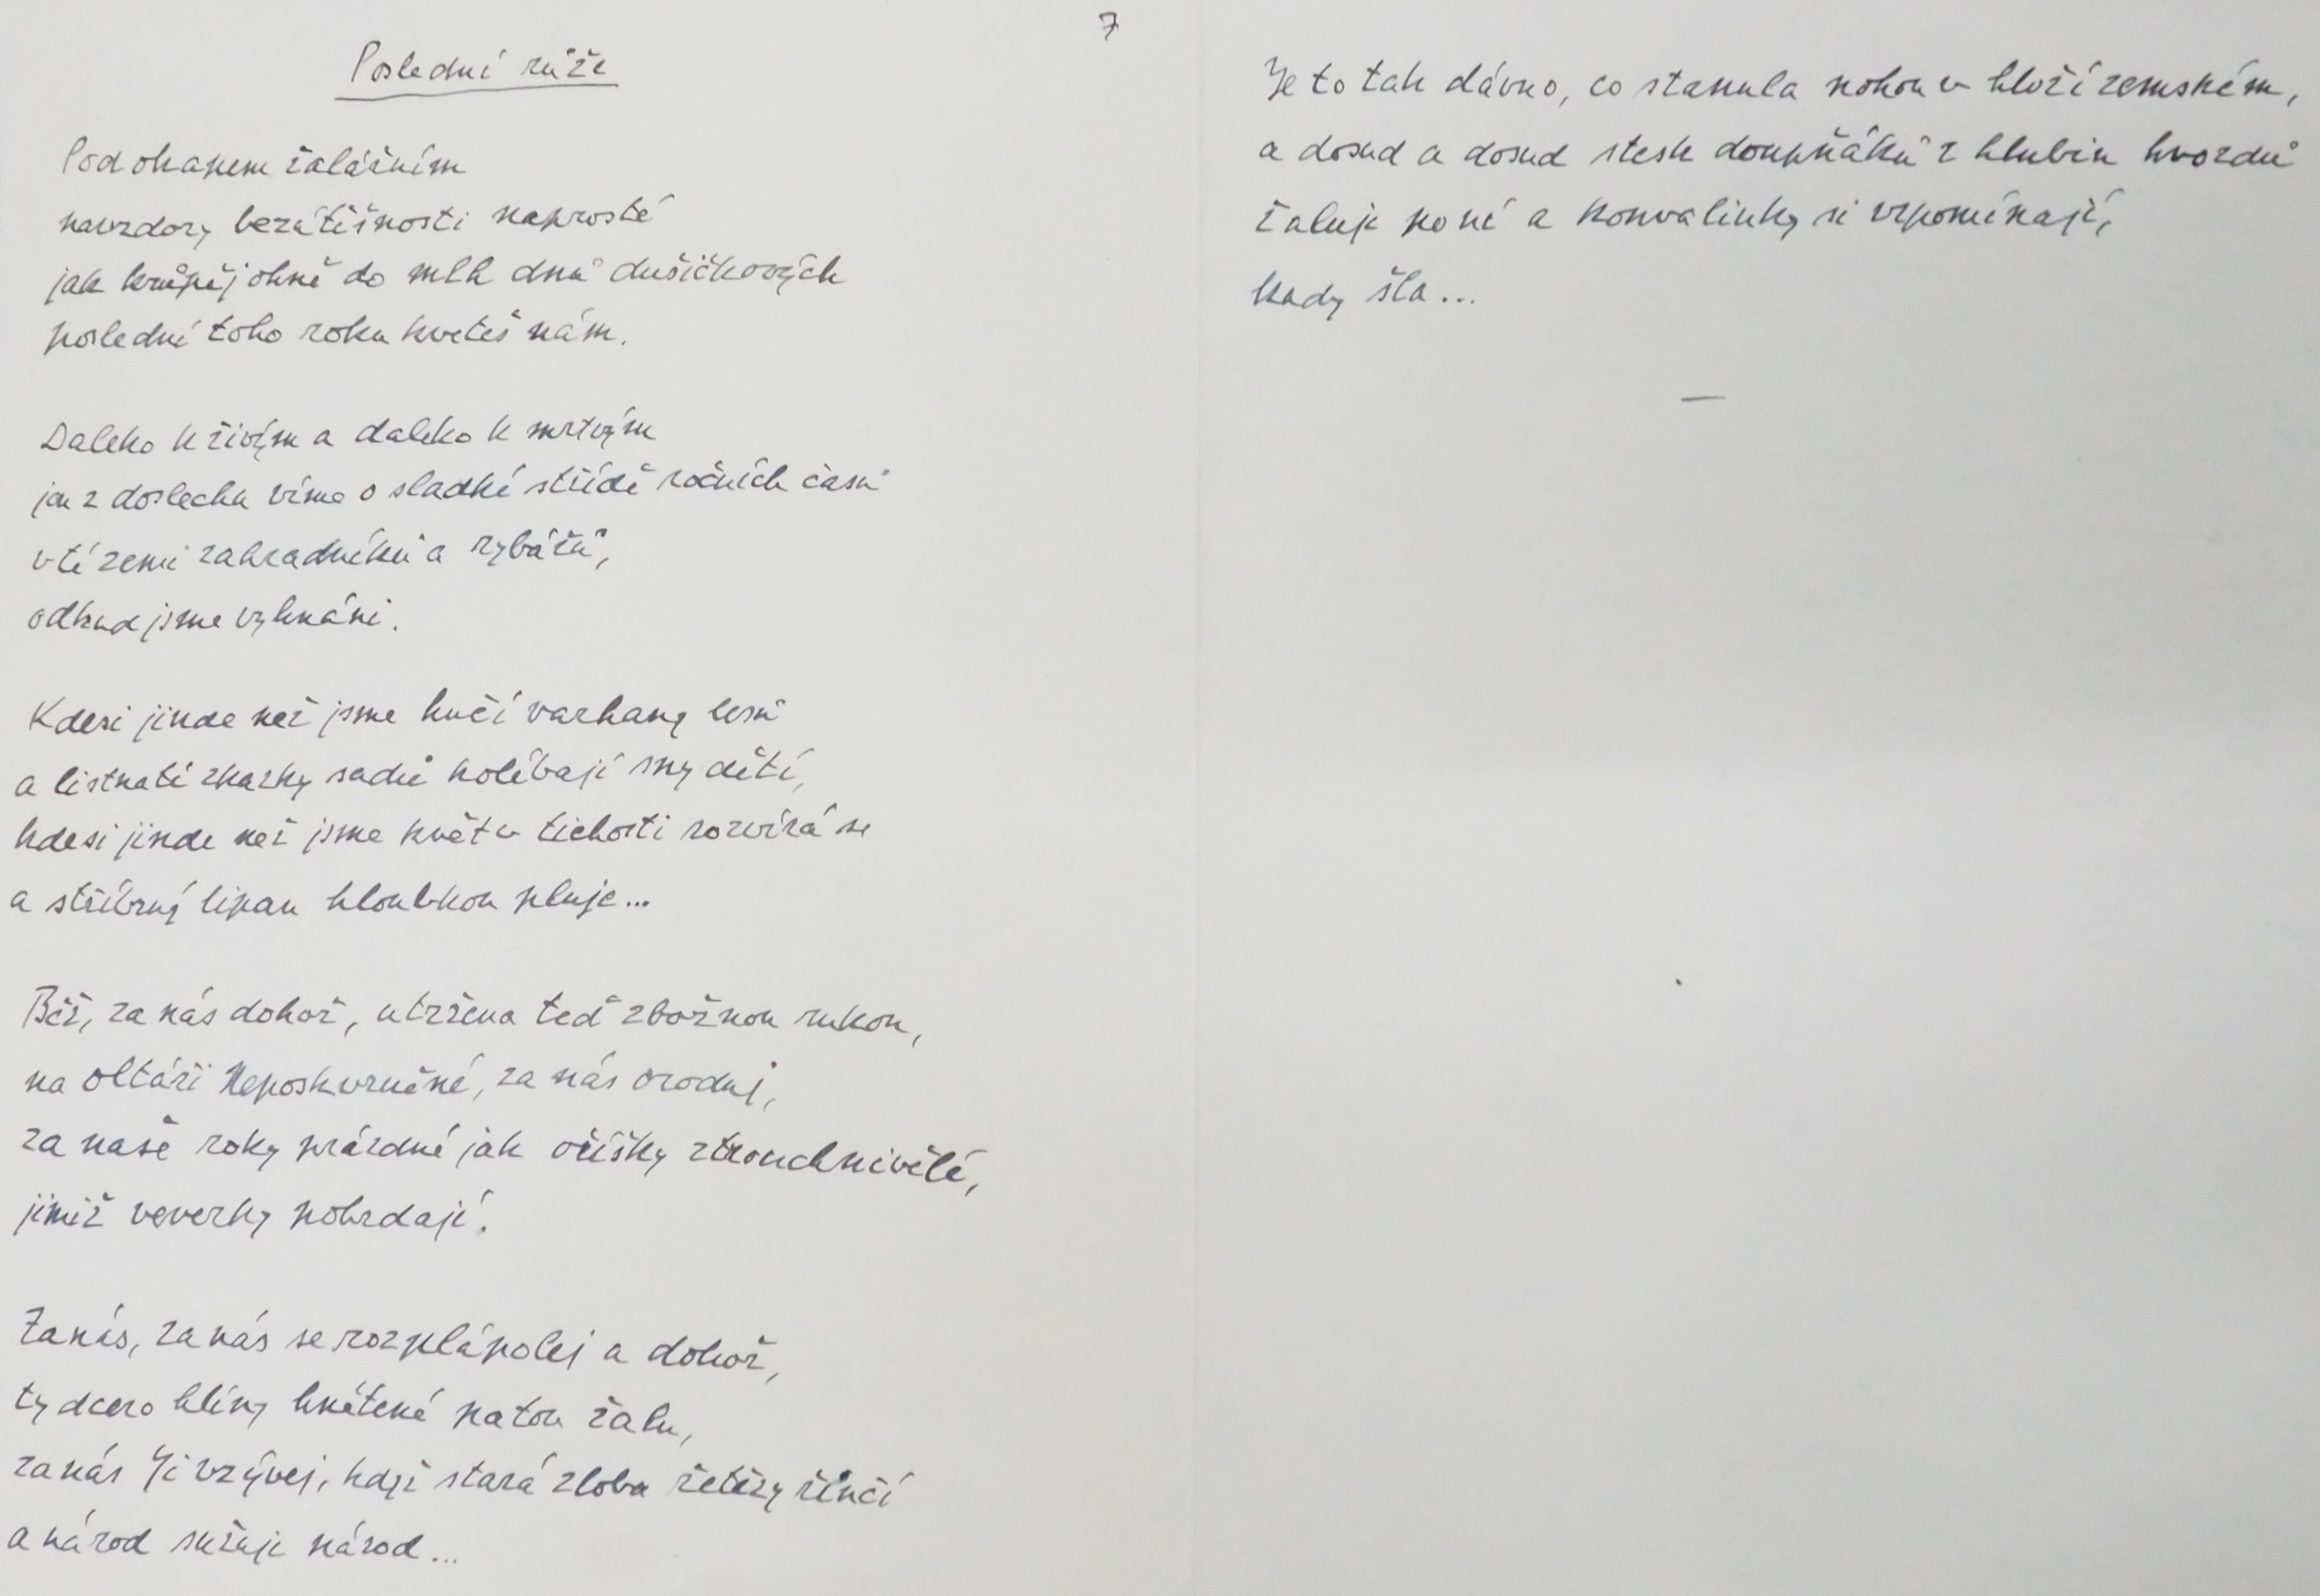 7
Poslední růže
Pod okapem žalářním
navzdory bezútěšnosti naprosté
jak krůpěj ohně do mlh dnů dušičkových
poslední toho roku kveteš nám.
Daleko k živým a daleko k mrtvým
jen z doslechu víme o sladké střídě ročních časů
v té zemi zahradníků a rybářů,
odkud jsme vyhnáni.
Kdesi jinde než jsme hučí varhany lesů
a listnaté zkazky sadů kolébají sny dětí,
kdesi jinde než jsme květ v tichosti rozvírá se
a stříbrný lipan hloubkou pluje...
Běž, za nás dohoř, utržena teď zbožnou rukou,
na oltáři Neposkvrněné, za nás oroduj,
za naše roky prázdné jak oříšky ztrouchnivělé,
jimiž veverky pohrdají.
Za nás, za nás se rozplápolej a dohoř,
ty dcero hlíny hnětené patou žalu,
za nás Ji vzývej, když stará zloba řetězy řinčí
a národ sužuje národ...
Je to tak dávno, co stanula nohou v hloží zemském,
a dosud a dosud stesk doupňáků z hlubin hvozdů
žaluje po ní a konvalinky si vzpomínají,
kady šla...